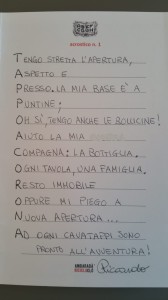 acrostico n. 1
TENGO STRETTA L'APERTURA,
ASPETTO E
PRESSO. LA MIA BASE È A
PUNTINE;
OH SÌ, TENGO ANCHE LE BOLLICINE!
AIUTO LA MIA
COMPAGNA: LA BOTTIGLIA.
OGNI TAVOLA, UNA FAMIGLIA.
RESTO IMMOBILE
OPPURE MI PIEGO A
NUOVA APERTURA...
AD OGNI CAVATAPPI SONO
PRONTO ALL'AVVENTURA!
Riccardo